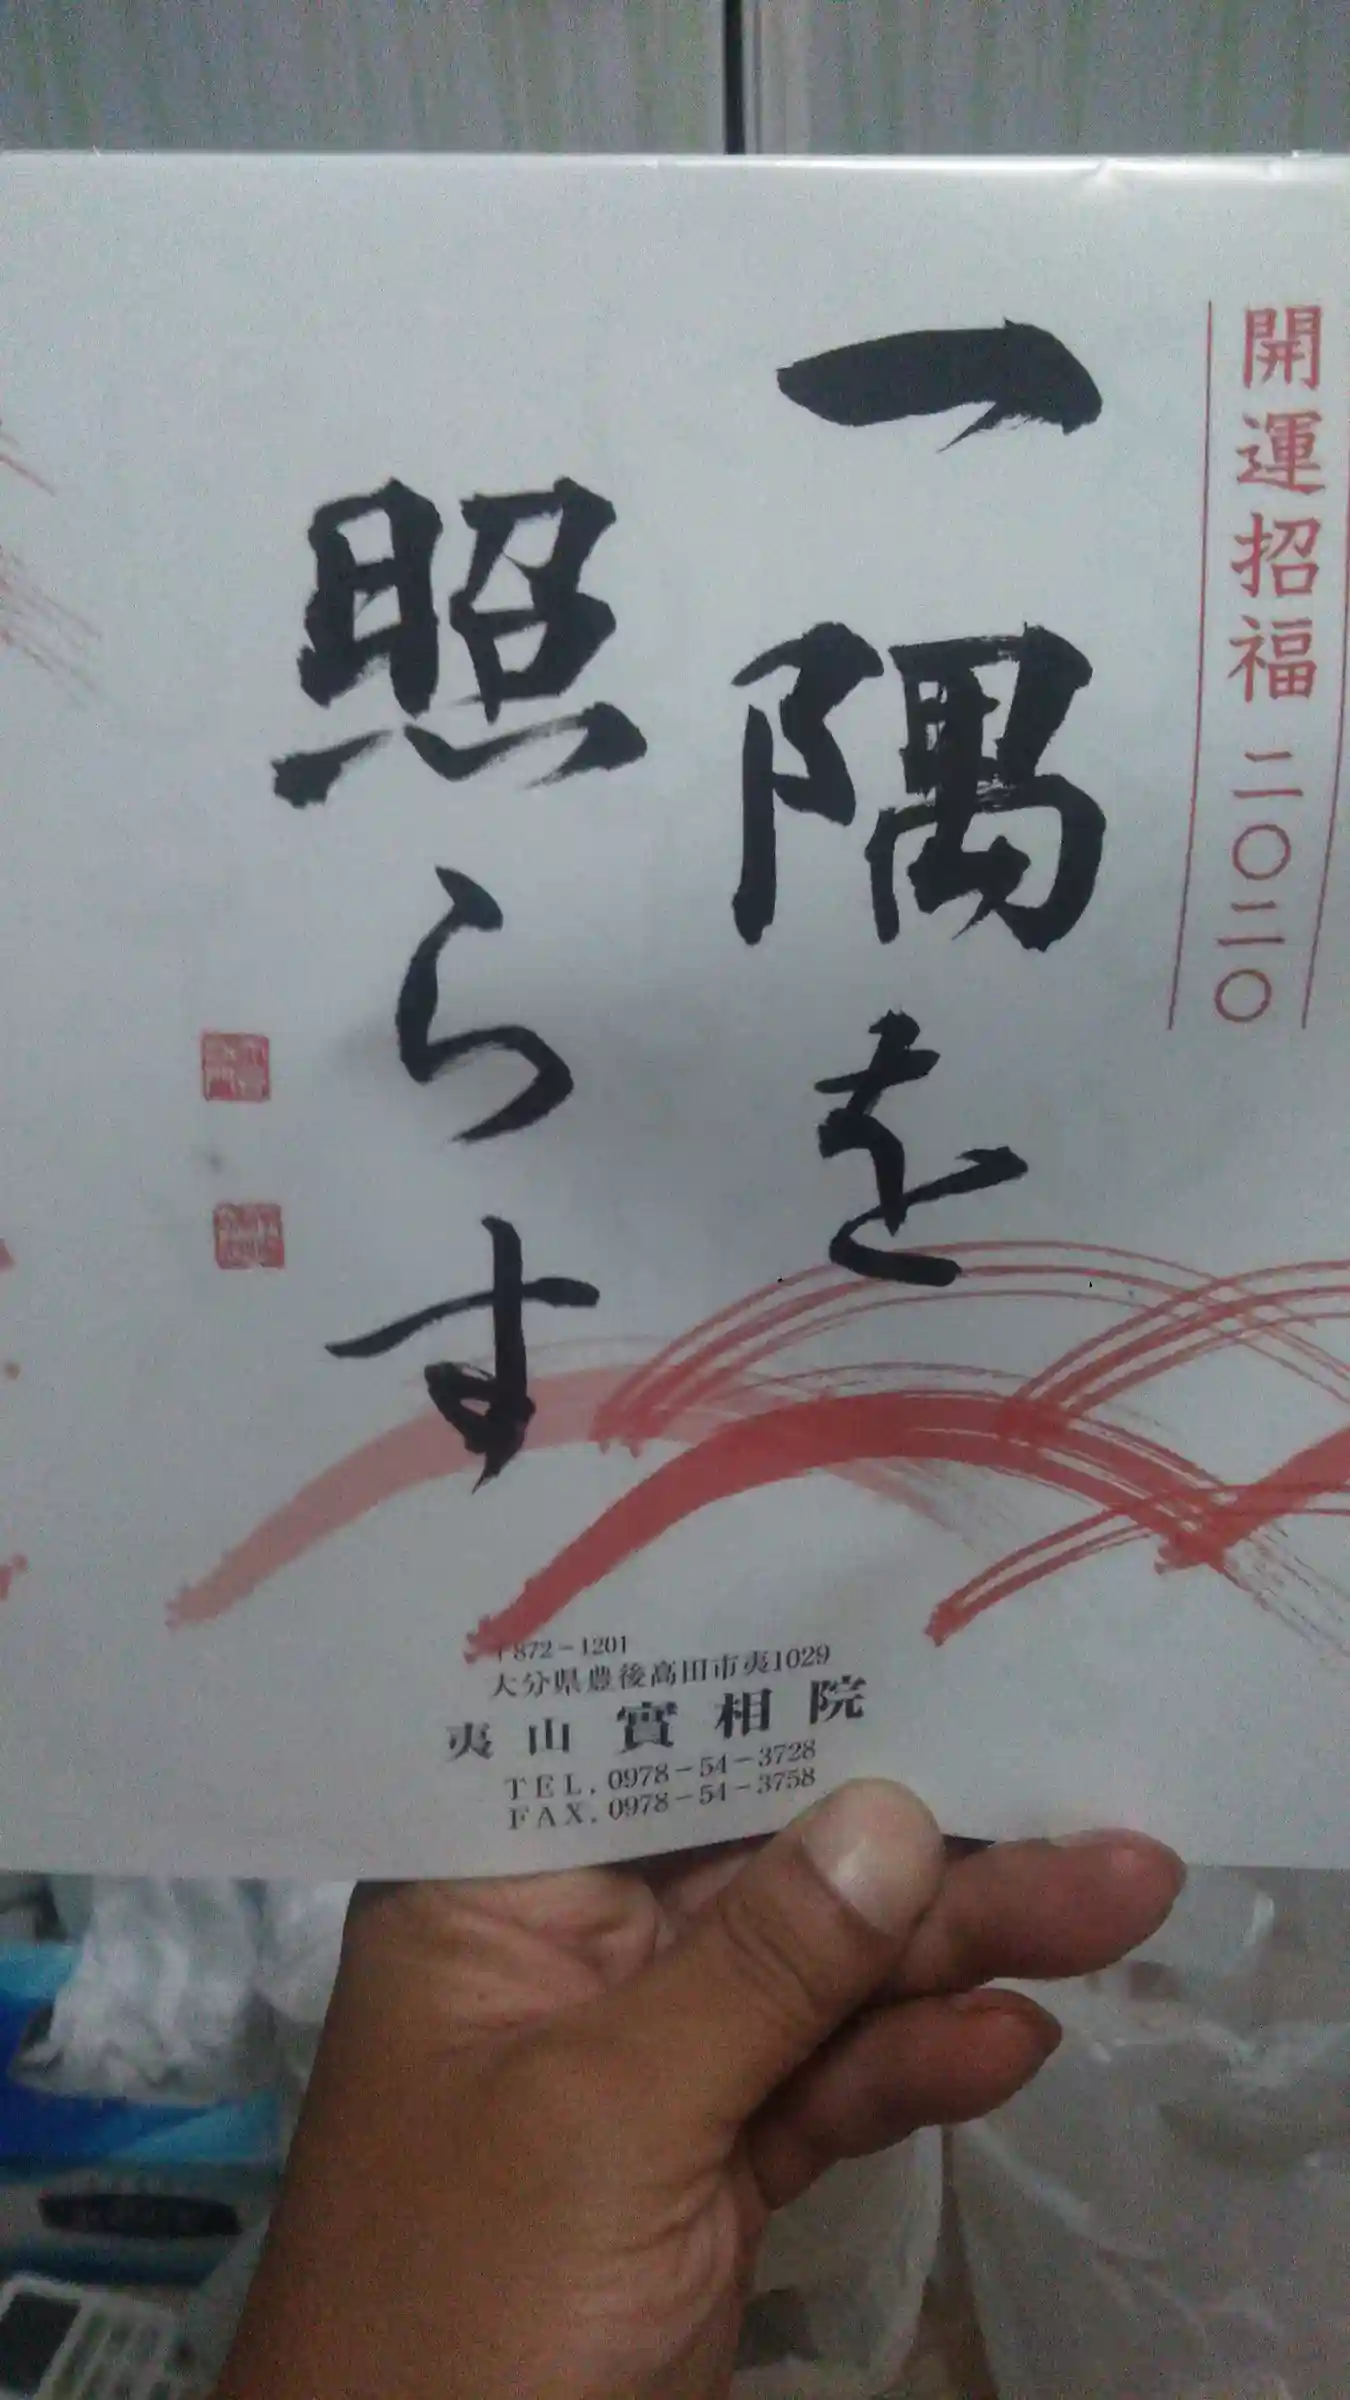 開運招福 二〇二〇
一隅を
照らす
〒872-1201
大分県豊後高田市夷1029
夷山 實相院
TEL. 0978-54-3728
FAX. 0978-54-3758